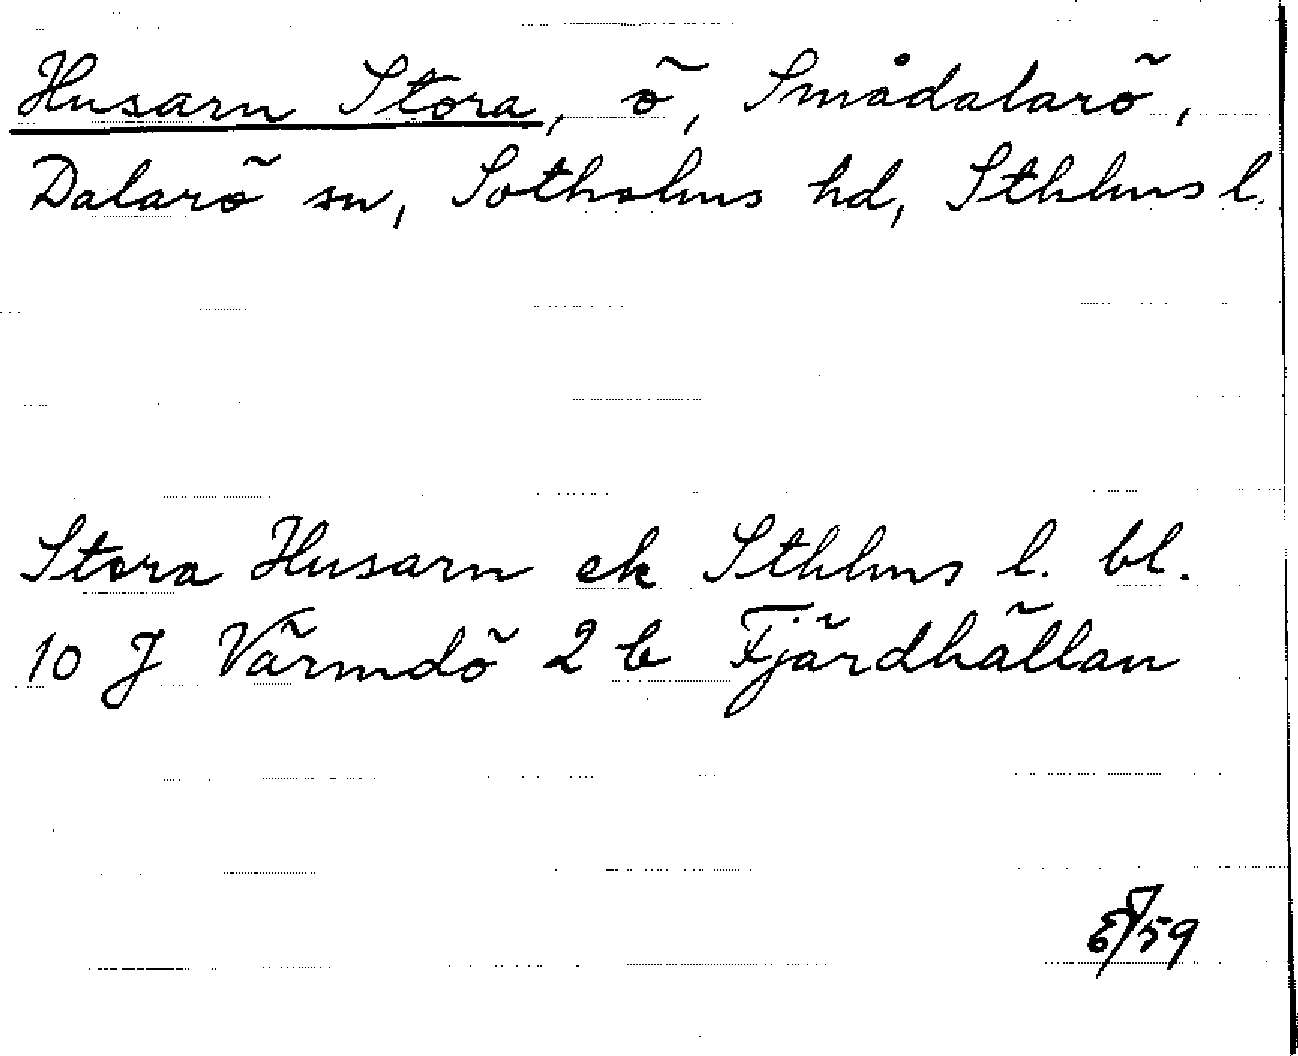 Husarn Stora, ö, Smådalarö,
Dalarö sn, Sotholms hd, Sthlms l.
Stora Husarn ek Sthlms l. bl.
10 J Värmdö 2 b Fjärdhällan
/59